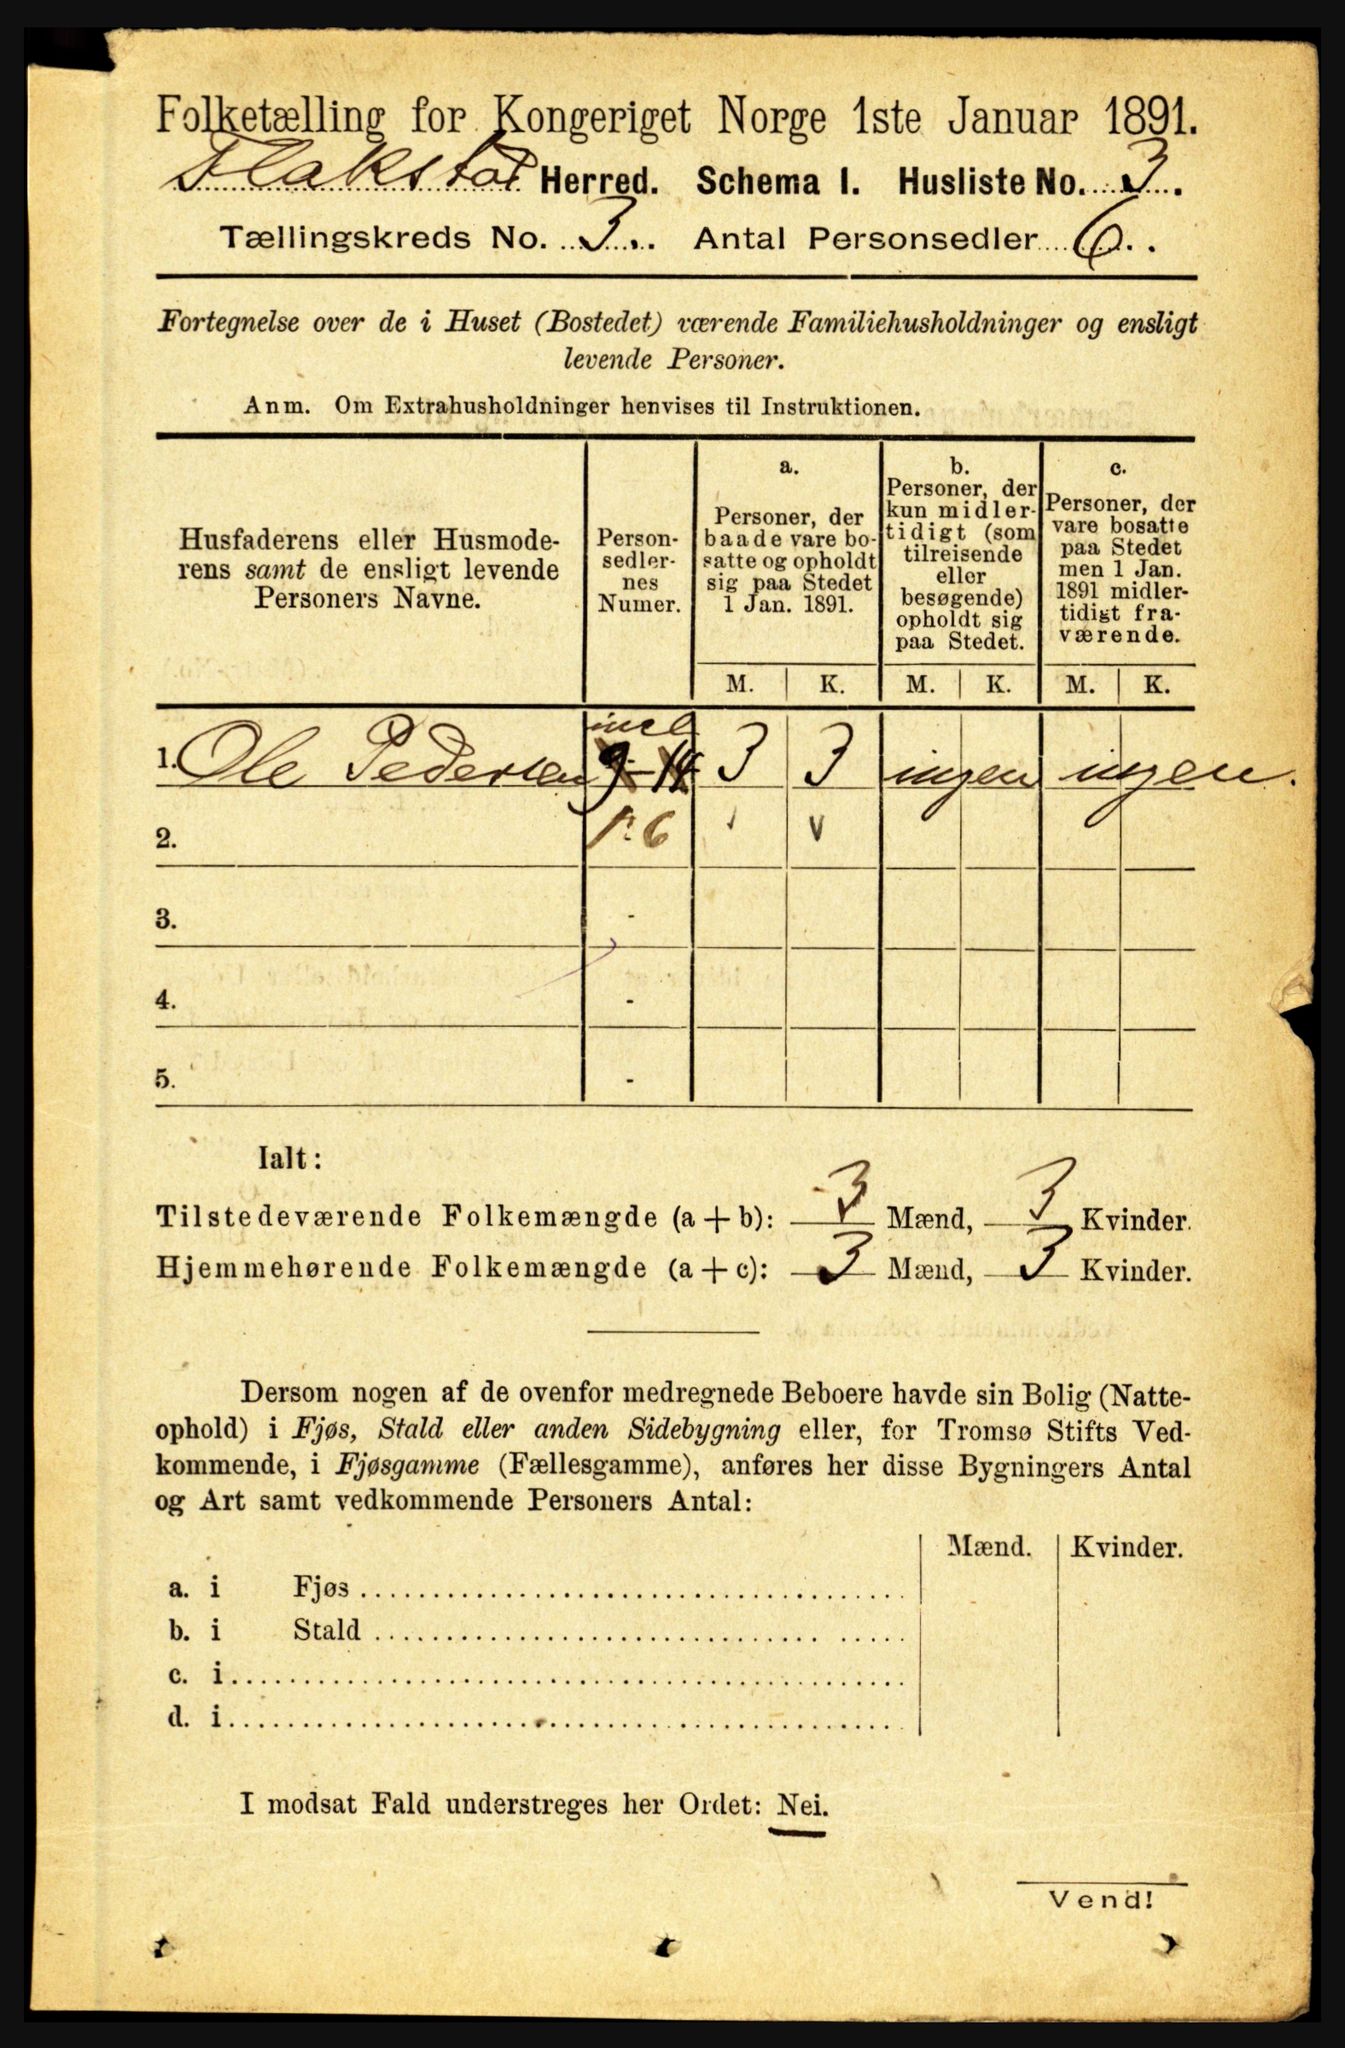 Folketælling for Kongeriget Norge 1ste Januar 1891.
Flakstad Herred. Schema I. Husliste No. 3.
Tællingskreds No. 3. Antal Personsedler 6.
Fortegnelse over de i Huset (Bostedet) værende Familiehusholdninger og ensligt
levende Personer.
Anm. Om Extrahusholdninger henvises til Instruktionen.
Husfaderens eller Husmode-
rens samt de ensligt levende
Personers Navne.
Person-
sedler-
nes
Numer.
a.
Personer, der
baade vare bo-
satte og opholdt
sig paa Stedet
1 Jan. 1891.
M. K.
b.
Personer, der
kun midler-
tidigt (som
tilreisende
eller
besøgende)
opholdt sig
paa Stedet.
M. K.
c.
Personer, der
vare bosatte
paa Stedet
men 1 Jan.
1891 midler-
tidigt fra-
værende.
M. K.
incl
1. Ole Pedersen 9-14 3 3 ingen ingen.
2. 1-6
3. -
4. -
5. -
Ialt:
Tilstedeværende Folkemængde (a + b): 3 Mænd, 3 Kvinder.
Hjemmehørende Folkemængde (a + c): 3 Mænd, 3 Kvinder.
Dersom nogen af de ovenfor medregnede Beboere havde sin Bolig (Natte-
ophold) i Fjøs, Stald eller anden Sidebygning eller, for Tromsø Stifts Ved-
kommende, i Fjøsgamme (Fællesgamme), anføres her disse Bygningers Antal
og Art samt vedkommende Personers Antal:
Mænd. Kvinder.
a. i Fjøs
b. i Stald
c. i
d. i
I modsat Fald understreges her Ordet: Nei.
Vend!